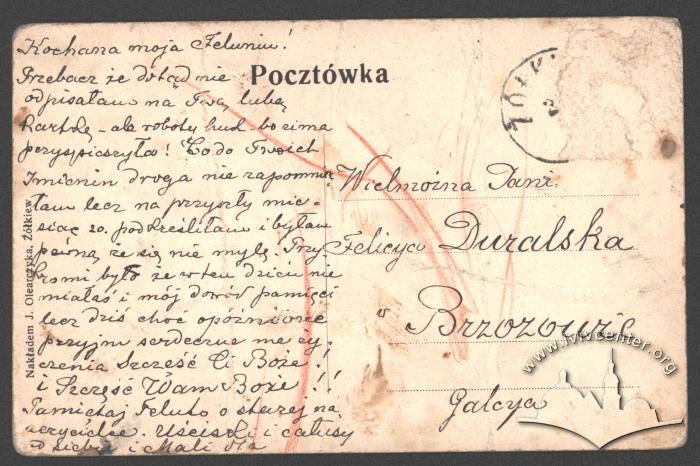 Kochana moja Feluniu!
Przebacz że dotąd nie
odpisałam na Twą lubą
kartkę – ale roboty huk – bo zima
przyspieszyła! Co do Twoich
Imienin droga nie zapomnia
łam lecz na przyszły mie-
siąc 20. podkreśliłam i byłam
pewną że się nie mylę. Przy
kro mi było że w ten dzień nie
miałaś i mój dowód pamięci
lecz dziś choć opóźnione
przyjm serdeczne me ży-
czenia Szczęść Ci Boże!
i Szczęść Wam Boże!
Pamiętaj Feluto o starej na
uczycielce. Uściski i całusy
od siebie i Mali dla
Pocztówka
ŻÓŁK
Wielmożna Pani
Felicya Duralska
w
Brzozowie
Galcya
Nakładem J. Olearczyka, Żółkiew
www.lvivcenter.org